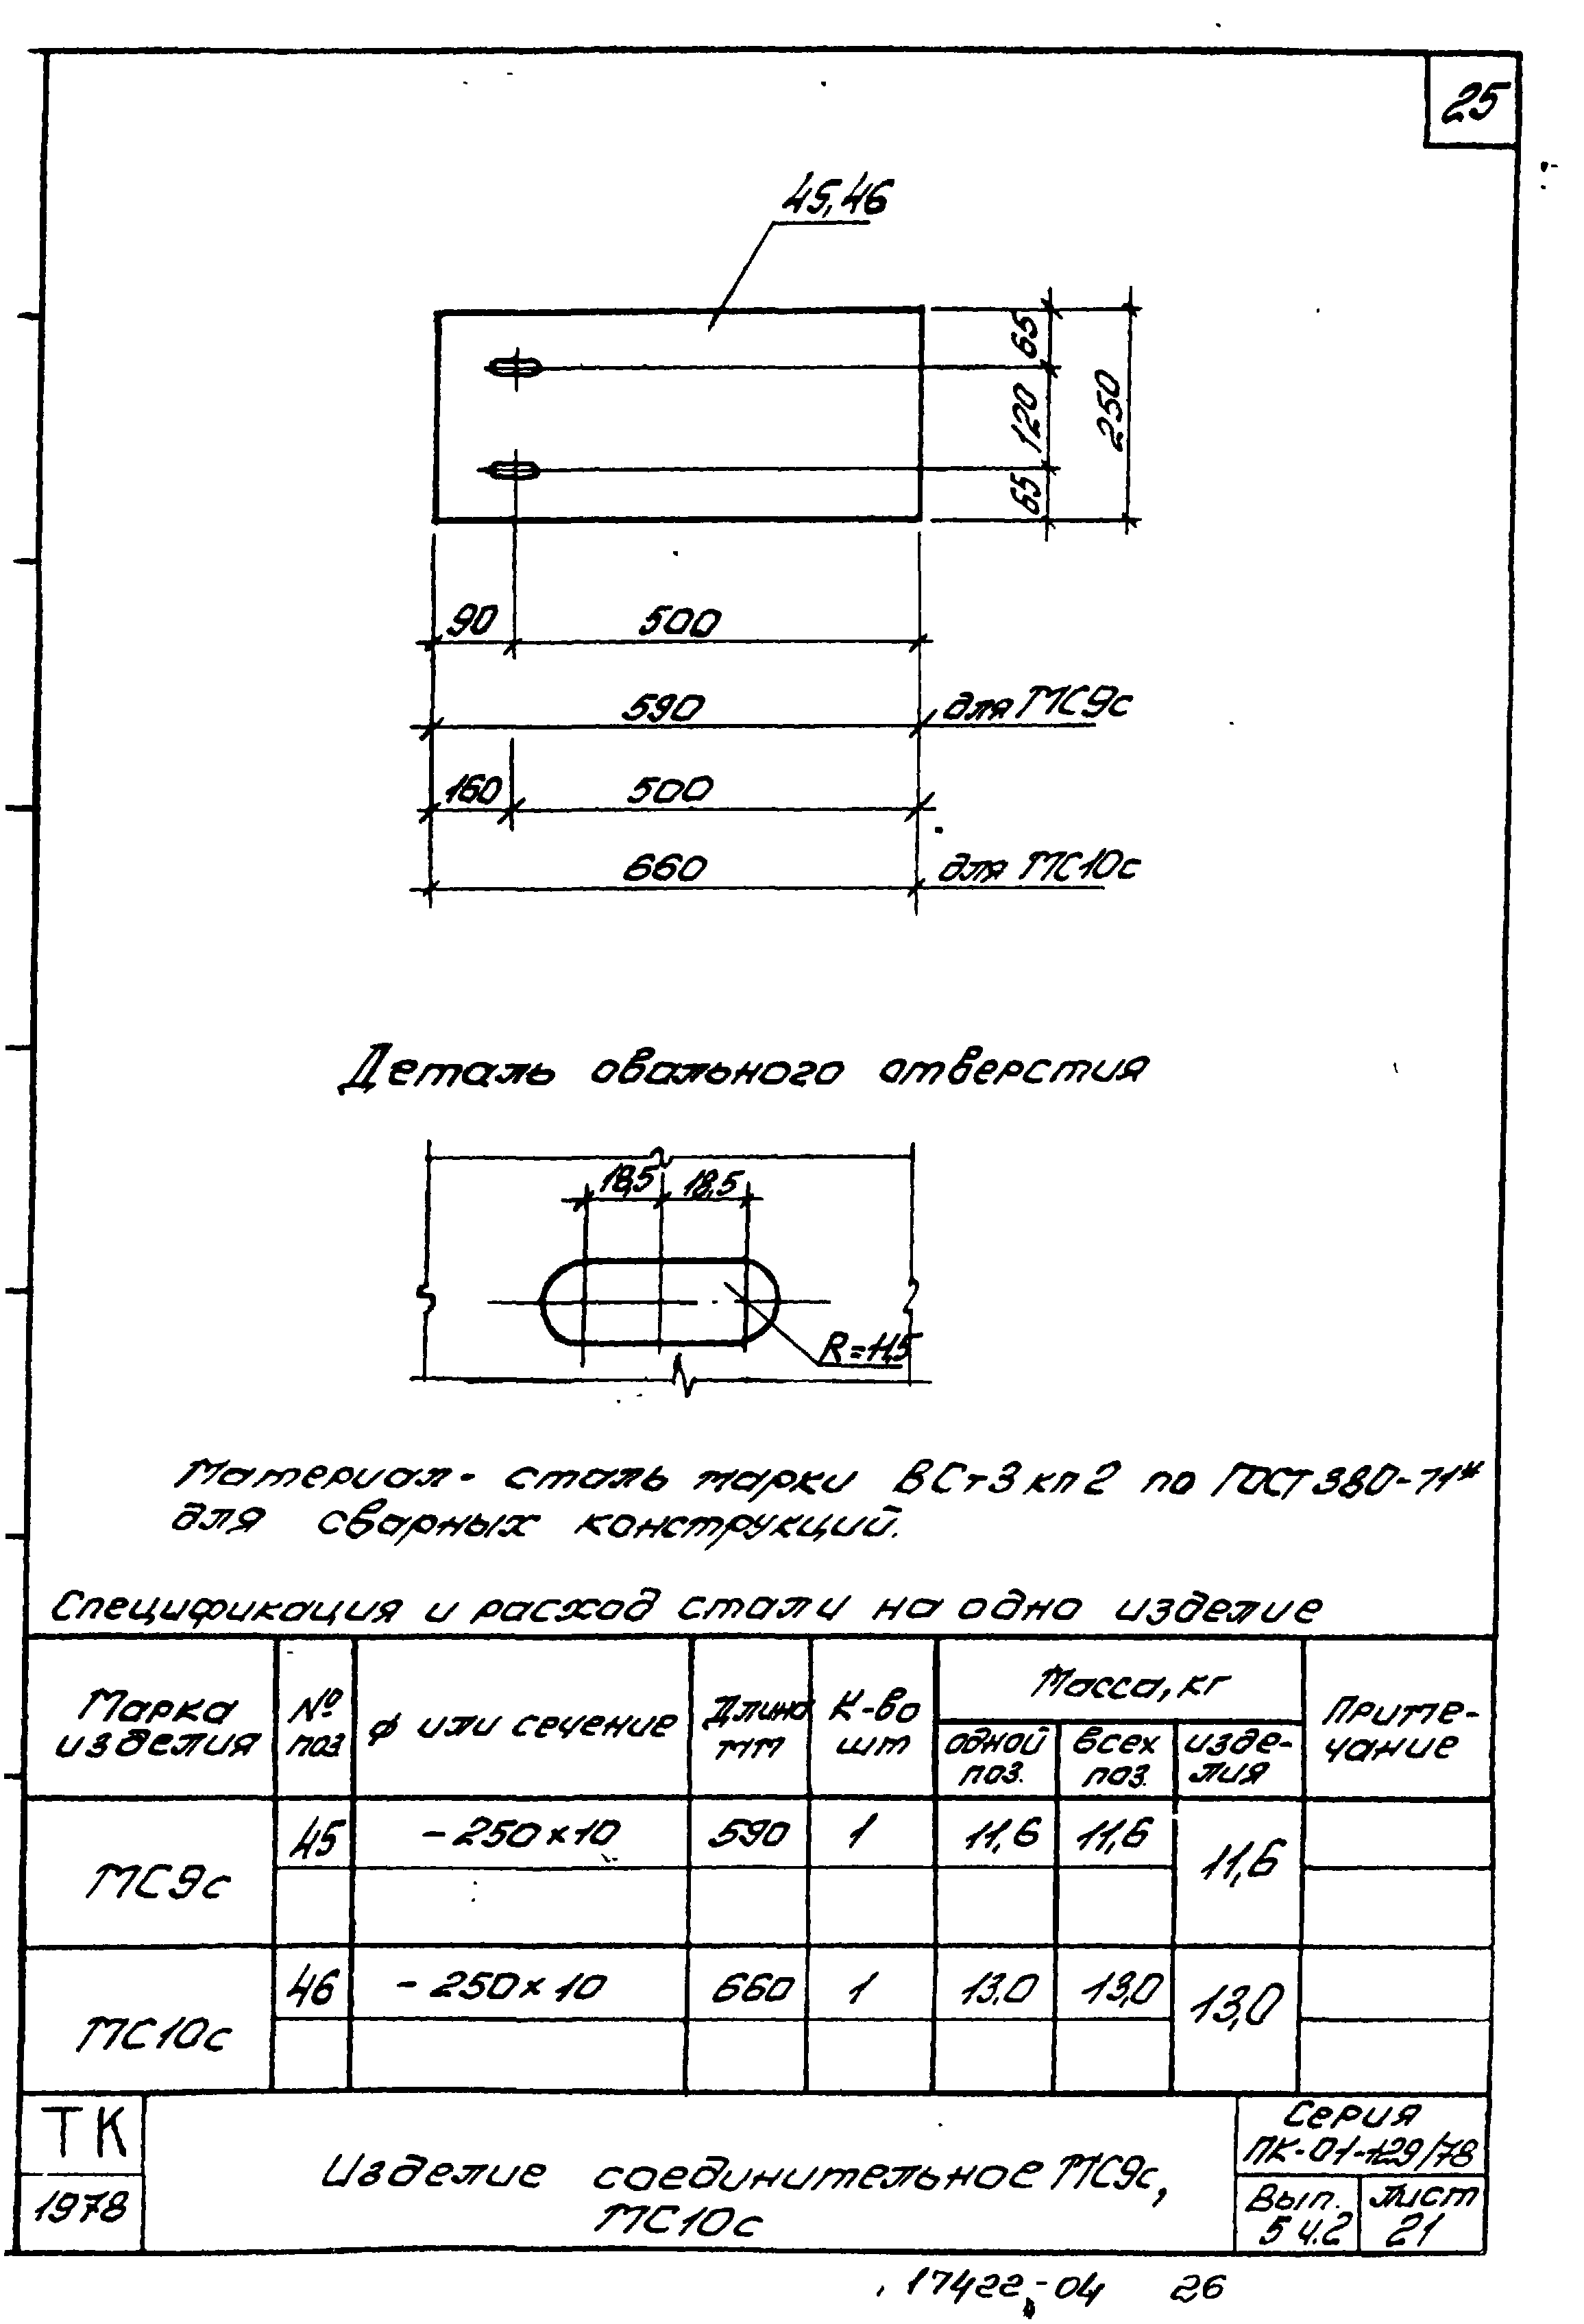 25
45,46
65
120
65
250
90 500
590 для МС9с
160 500
660 для МС10с
Деталь овального отверстия
18,5 18,5
R=11,5
Материал - сталь марки ВСт3кп2 по ГОСТ 380-71*
для сварных конструкций.
Спецификация и расход стали на одно изделие
Марка изделия
№ поз
ф или сечение
Длина мм
К-во шт
Масса, кг
одной поз.
всех поз.
изделия
Примечание
МС9с 45 -250×10 590 1 11,6 11,6 11,6
МС10с 46 -250×10 660 1 13,0 13,0 13,0
ТК
1978
Изделие соединительное МС9с,
МС10с
Серия
ПК-01-129/78
Вып.
5 ч.2
Лист
21
17422-04 26